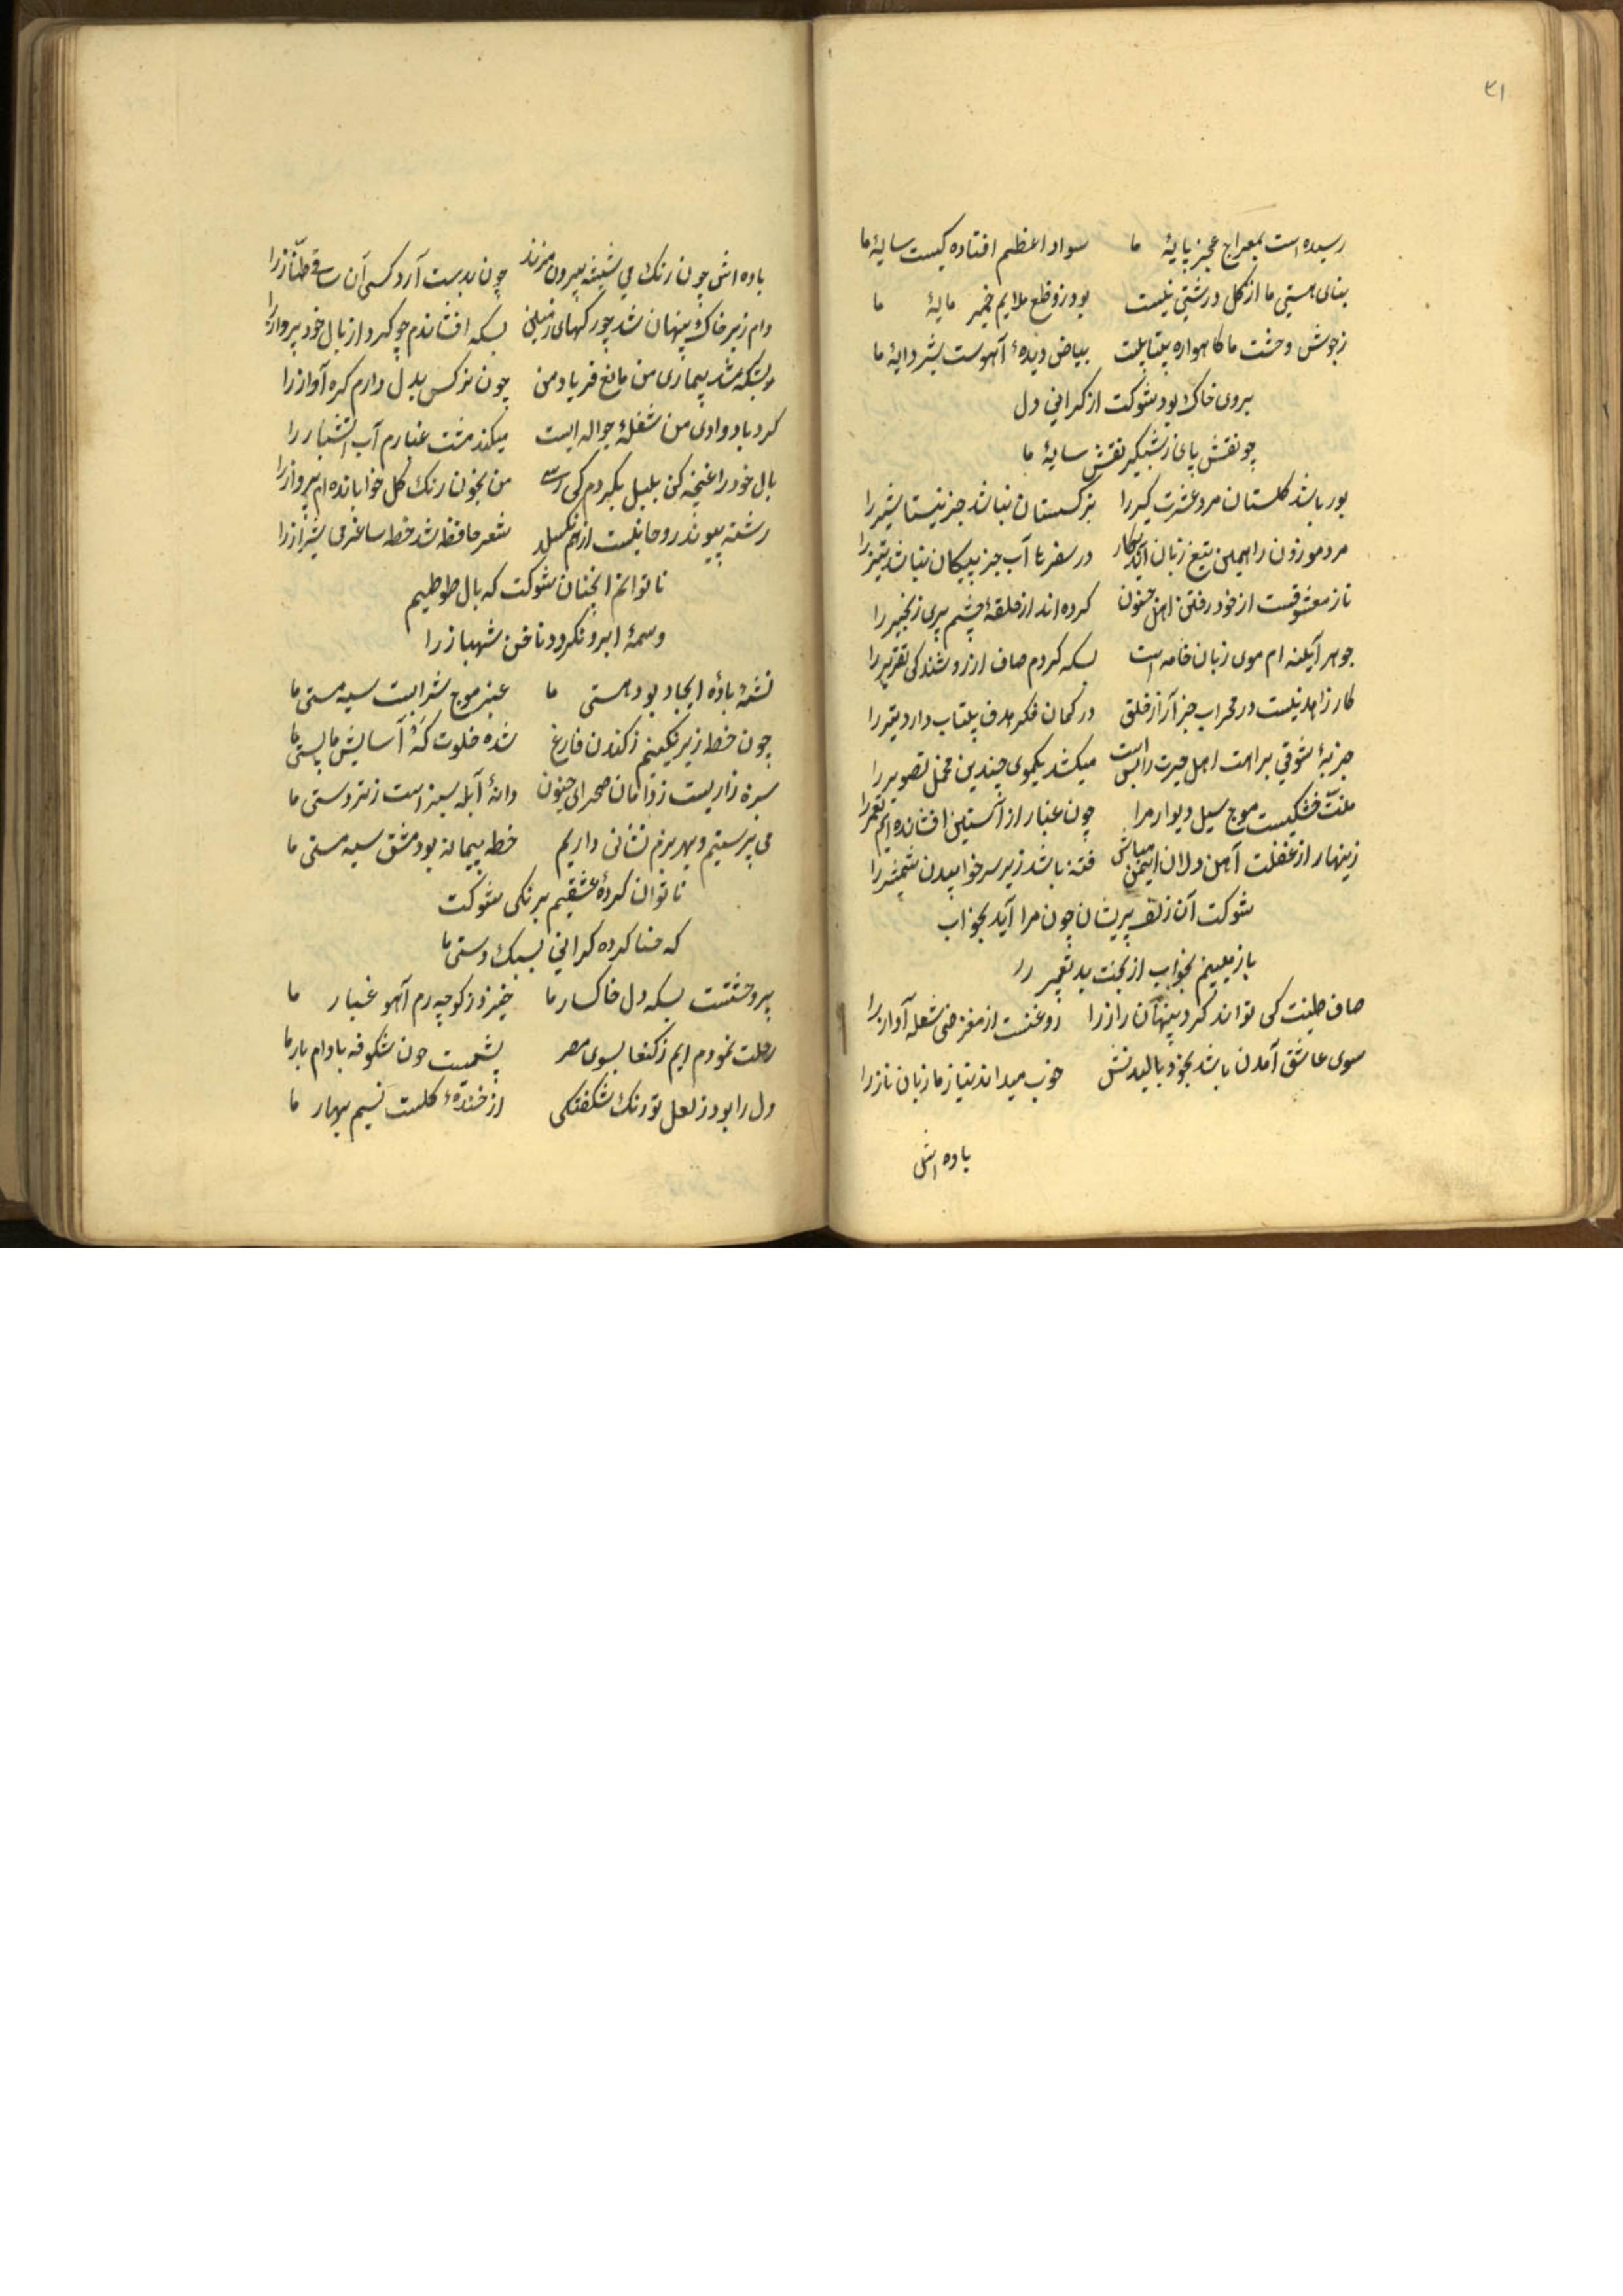 ۳۱
رسیده است بمعراج عجز پایهٔ ما سواد اعظم افتاده کیست سایهٔ ما
بنای هستی ما از کل درشتی نیست بود ز وضع ملایم خمیر مایهٔ ما
ز جوش وحشت ما کاهواره بیتابیست بیاض دیدهٔ آهوست شیر دایهٔ ما
بروی خاک بود شوکت از کرانی دل
چو نقش پای زمینکیر نقش سایهٔ ما
بوریا باشد کلستان مرد عشرت کیر را نرکسستان نباشد جز نیستان شیر را
مردم موزون را همین تیغ زبان آید بکار در سفرها آب جز پیکان نباشد تیر را
ناز معشوقست از خود رفتن اهل جنون کرده اند از حلقهٔ چشم پری زنجیر را
جوهر آیینه ام موی زبان خامه است بسکه کردم صاف از روشندلی تقریر را
کار زاهد نیست در محراب جز آزار خلق در کمان فکر هدف بیتاب دارد تیر را
جذبهٔ شوقی براهت اهل حیرت را بس است میکشد یکموی چندین محمل تصویر را
منت خشکیست موج سیل دیوار مرا چون غبار از آستین افشانده ایم تعمیر را
زینهار از غفلت آهن دلان ایمن مباش فتنه باشد زیر سر خوابیدن شمشیر را
شوکت آن زلف پریشان چون مرا آید بخواب
باز میبینم بخواب از بخت بد تعبیر را
صاف طینت کی تواند کرد پنهان راز را روغنست از مغز خنی شعله آواز را
سوی عاشق آمدن باشد بخود بالیدنش خوب میداند نیاز ما زبان ناز را
باده اش
باده اش چون رنک می شیشه بیرون میزند چون بدست آرد کسی آن ساقی طناز را
دام زیر خاک پنهان شد چو رکهای زمین بسکه افشاندم چو کرد از بال خود پرواز را
بسکه شد بیماری من مانع فریاد من چون نرکس بدل دارم کره آواز را
کردباد وادی من شعلهٔ جواله ایست میکند مشت غبارم آب آتشبار را
بال خود را غنچه کن بلبل بکردم کی رسی من بخون رنک کل خوابانده ام پرواز را
رشته پیوند روحانیست از هم نکسلد شعر حافظ شد خط ساغر می شیراز را
ناتوانم آنچنان شوکت که بال طوطیم
وسمهٔ ابرو نکردد ناخن شهباز را
نشهٔ بادهٔ ایجاد بود هستی ما عنبر موج شرابست سیه مستی ما
چون خط زیر نکینم ز کندن فارغ شده خلوت کهٔ آسایش ما پستی ما
سبزه زاریست ز دامان صحرای جنون دانهٔ آبله سبز است ز تردستی ما
می پرستیم و بهر بزم نشانی داریم خط پیمانه بود مشق سیه مستی ما
ناتوان کردهٔ عشقیم برنکی شوکت
که حنا کرده کرانی بسبک دستی ما
پر وحشتست بسکه دل خاکسار ما خیزد ز کوچه رم آهو غبار ما
رحلت نمودم ایم ز کنعا بسوی مصر پشمیست چون شکوفه بادام بار ما
دل را بود ز لعل تو رنک شکفتکی از خندهٔ کلست نسیم بهار ما